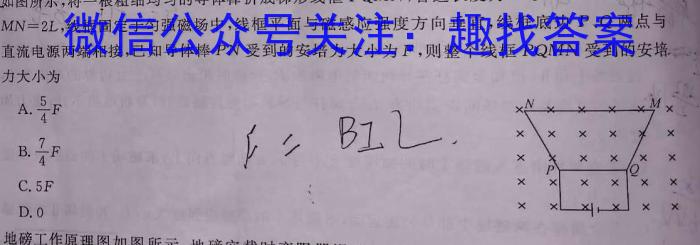 如图所示,将一根粗细均匀的导体棒折成梯形线框
MN=2L,线框固定于匀强磁场中,线框平面与磁感应强度方向垂直,线框底边 两点与
微信公众号关注:趣找答案
直流电源两端相接,已知导体棒 受到的安培力大小为F,则整个线框PQMN受到的安培
力大小为
A. 5/4 F
B. 7/4 F
C. 5F
D. 0
F = BIL.
N M
P Q
地磅工作原理图如图所示